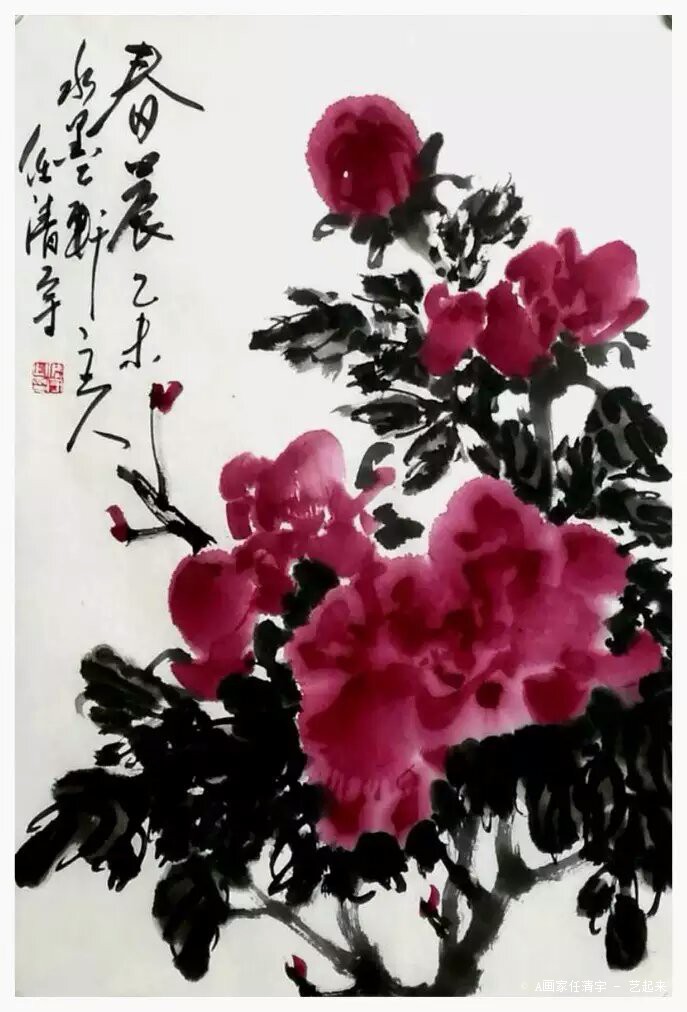 春晨 乙未
水墨轩主人
任清宇
© A画家任清宇 - 艺起来